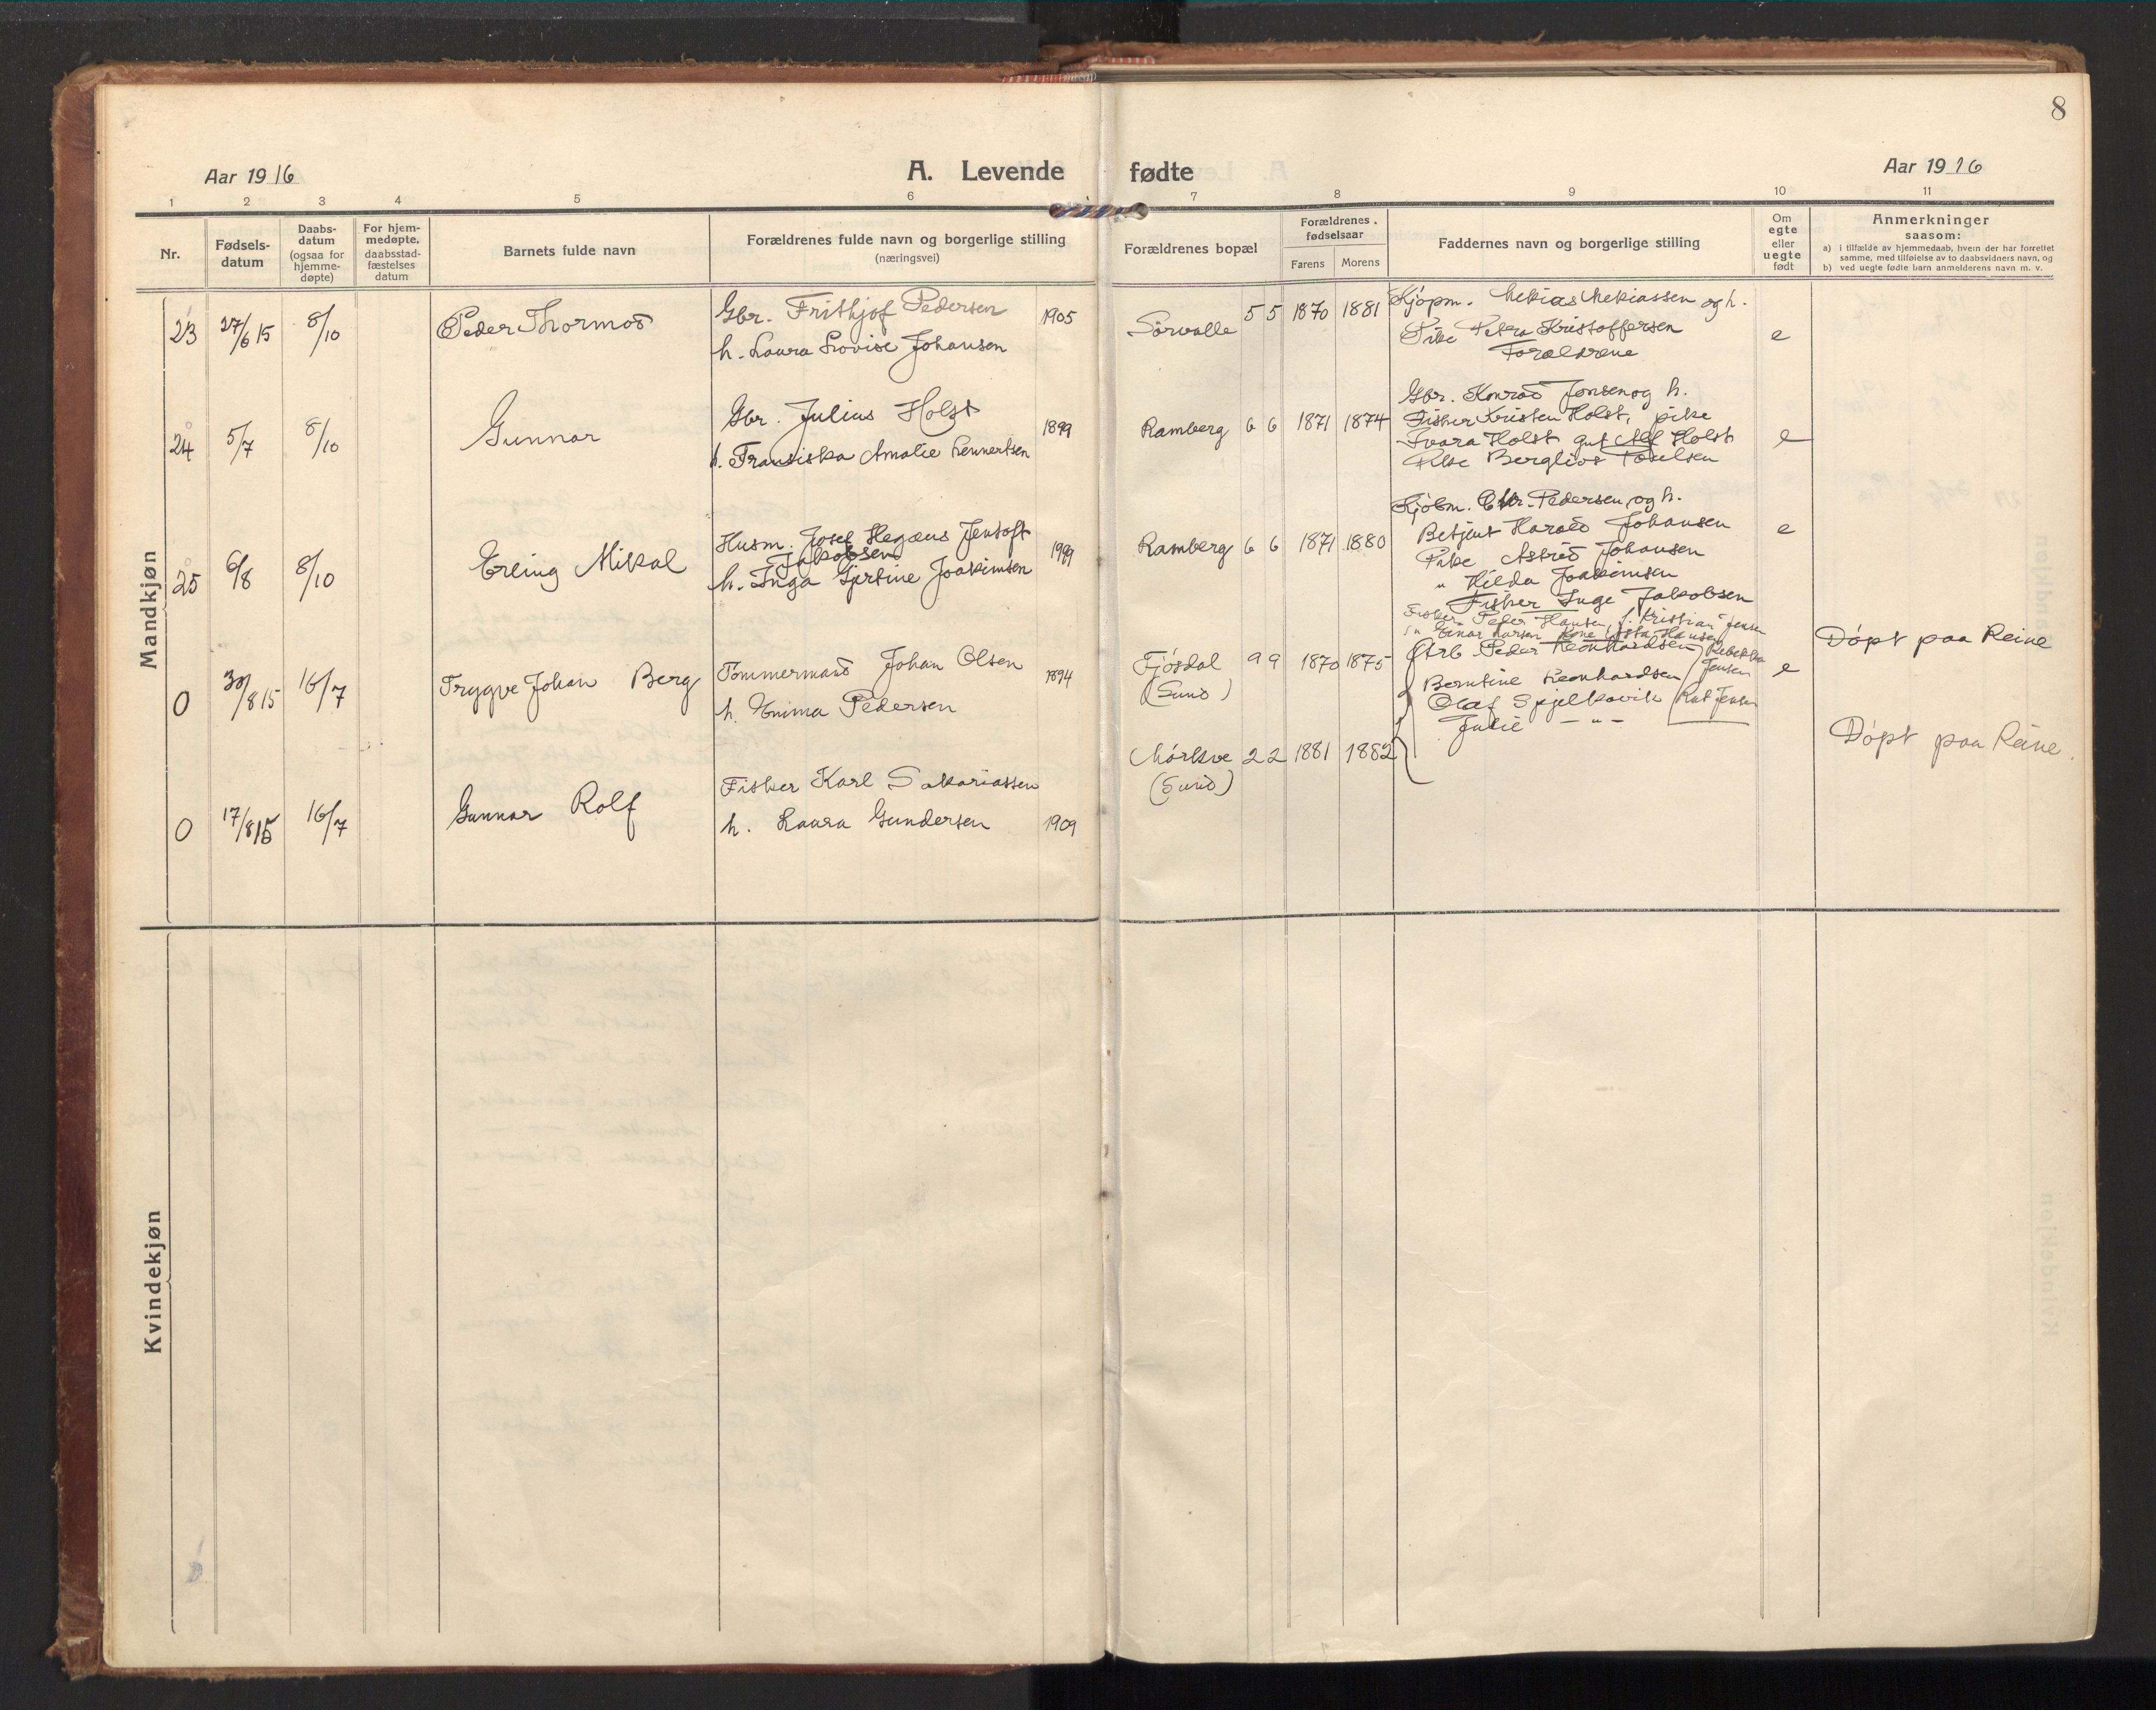 8
Aar 1916
A. Levende fødte
Aar 1916
1 2 3 4 5 6 7 8 9 10 11
Nr.
Fødsels-
datum
Daabs-
datum
(ogsaa for
hjemme-
døpte)
For hjem-
medøpte,
daabsstad-
fæstelses
datum
Barnets fulde navn
Forældrenes fulde navn og borgerlige stilling
(næringsvei)
Forældrenes bopæl
Forældrenes
fødselsaar
Farens Morens
Faddernes navn og borgerlige stilling
Om
egte
eller
uegte
født
Anmerkninger
saasom:
a) i tilfælde av hjemmedaab, hvem der har forrettet
samme, med tilføielse av to daabsvidners navn, og
b) ved uegte fødte barn anmelderens navn m. v.
Mandkjøn
23 27/6 15 8/10 Peder Thormod
Gbr. Frithjof Pedersen 1905
h. Laura Lovise Johansen
Sørvalle 5 5 1870 1881
Kjøpm. og h.
Pike Petra Kristoffersen
Forældrene
e
24 5/7 8/10 Gunnar
Gbr. Julius Holst 1899
h. Fransiska Amalie Lennertsen
Ramberg 6 6 1871 1874
Gbr. Konrad Jonsen og h.
Fisker Kristen Holst, pike
Svara Holst gut Alf Holst
Pike Bergliot
e
25 6/8 8/10 Erling Mikal
Husm. Josef Hegæus Jentoft
Jakobsen 1999
h. Inga Gjertine Joakimsen
Ramberg 6 6 1871 1880
Kjøbm. Chr. Pedersen og h.
Betjent Harald Johansen
Pike Astrid Johansen
" Hilda Joakimsen
Fisker Inge Jakobsen
e
0 30/8 15 16/7 Trygve Johan Berg
Tømmermand Johan Olsen 1894
h. Emma Pedersen
Fjøsdal 9 9 1870 1875
(Sund)
Fisker Peder Hansen, f. Kristian Jensen
" Einar Larsen Kone Hansen
Arb Peder Leonhardsen Rebekka
Jensen
Berntine Leonhardsen
Olaf Spjelkavik Rut Jensen
Julie — " —
e
Døpt paa Reine
0 17/8 15 16/7 Gunnar Rolf
Fisker Karl Sakariassen
h. Laura Gundersen 1909
Mørkve 2 2 1881 1882
(Sund)
Døpt paa Reine.
Kvindekjøn